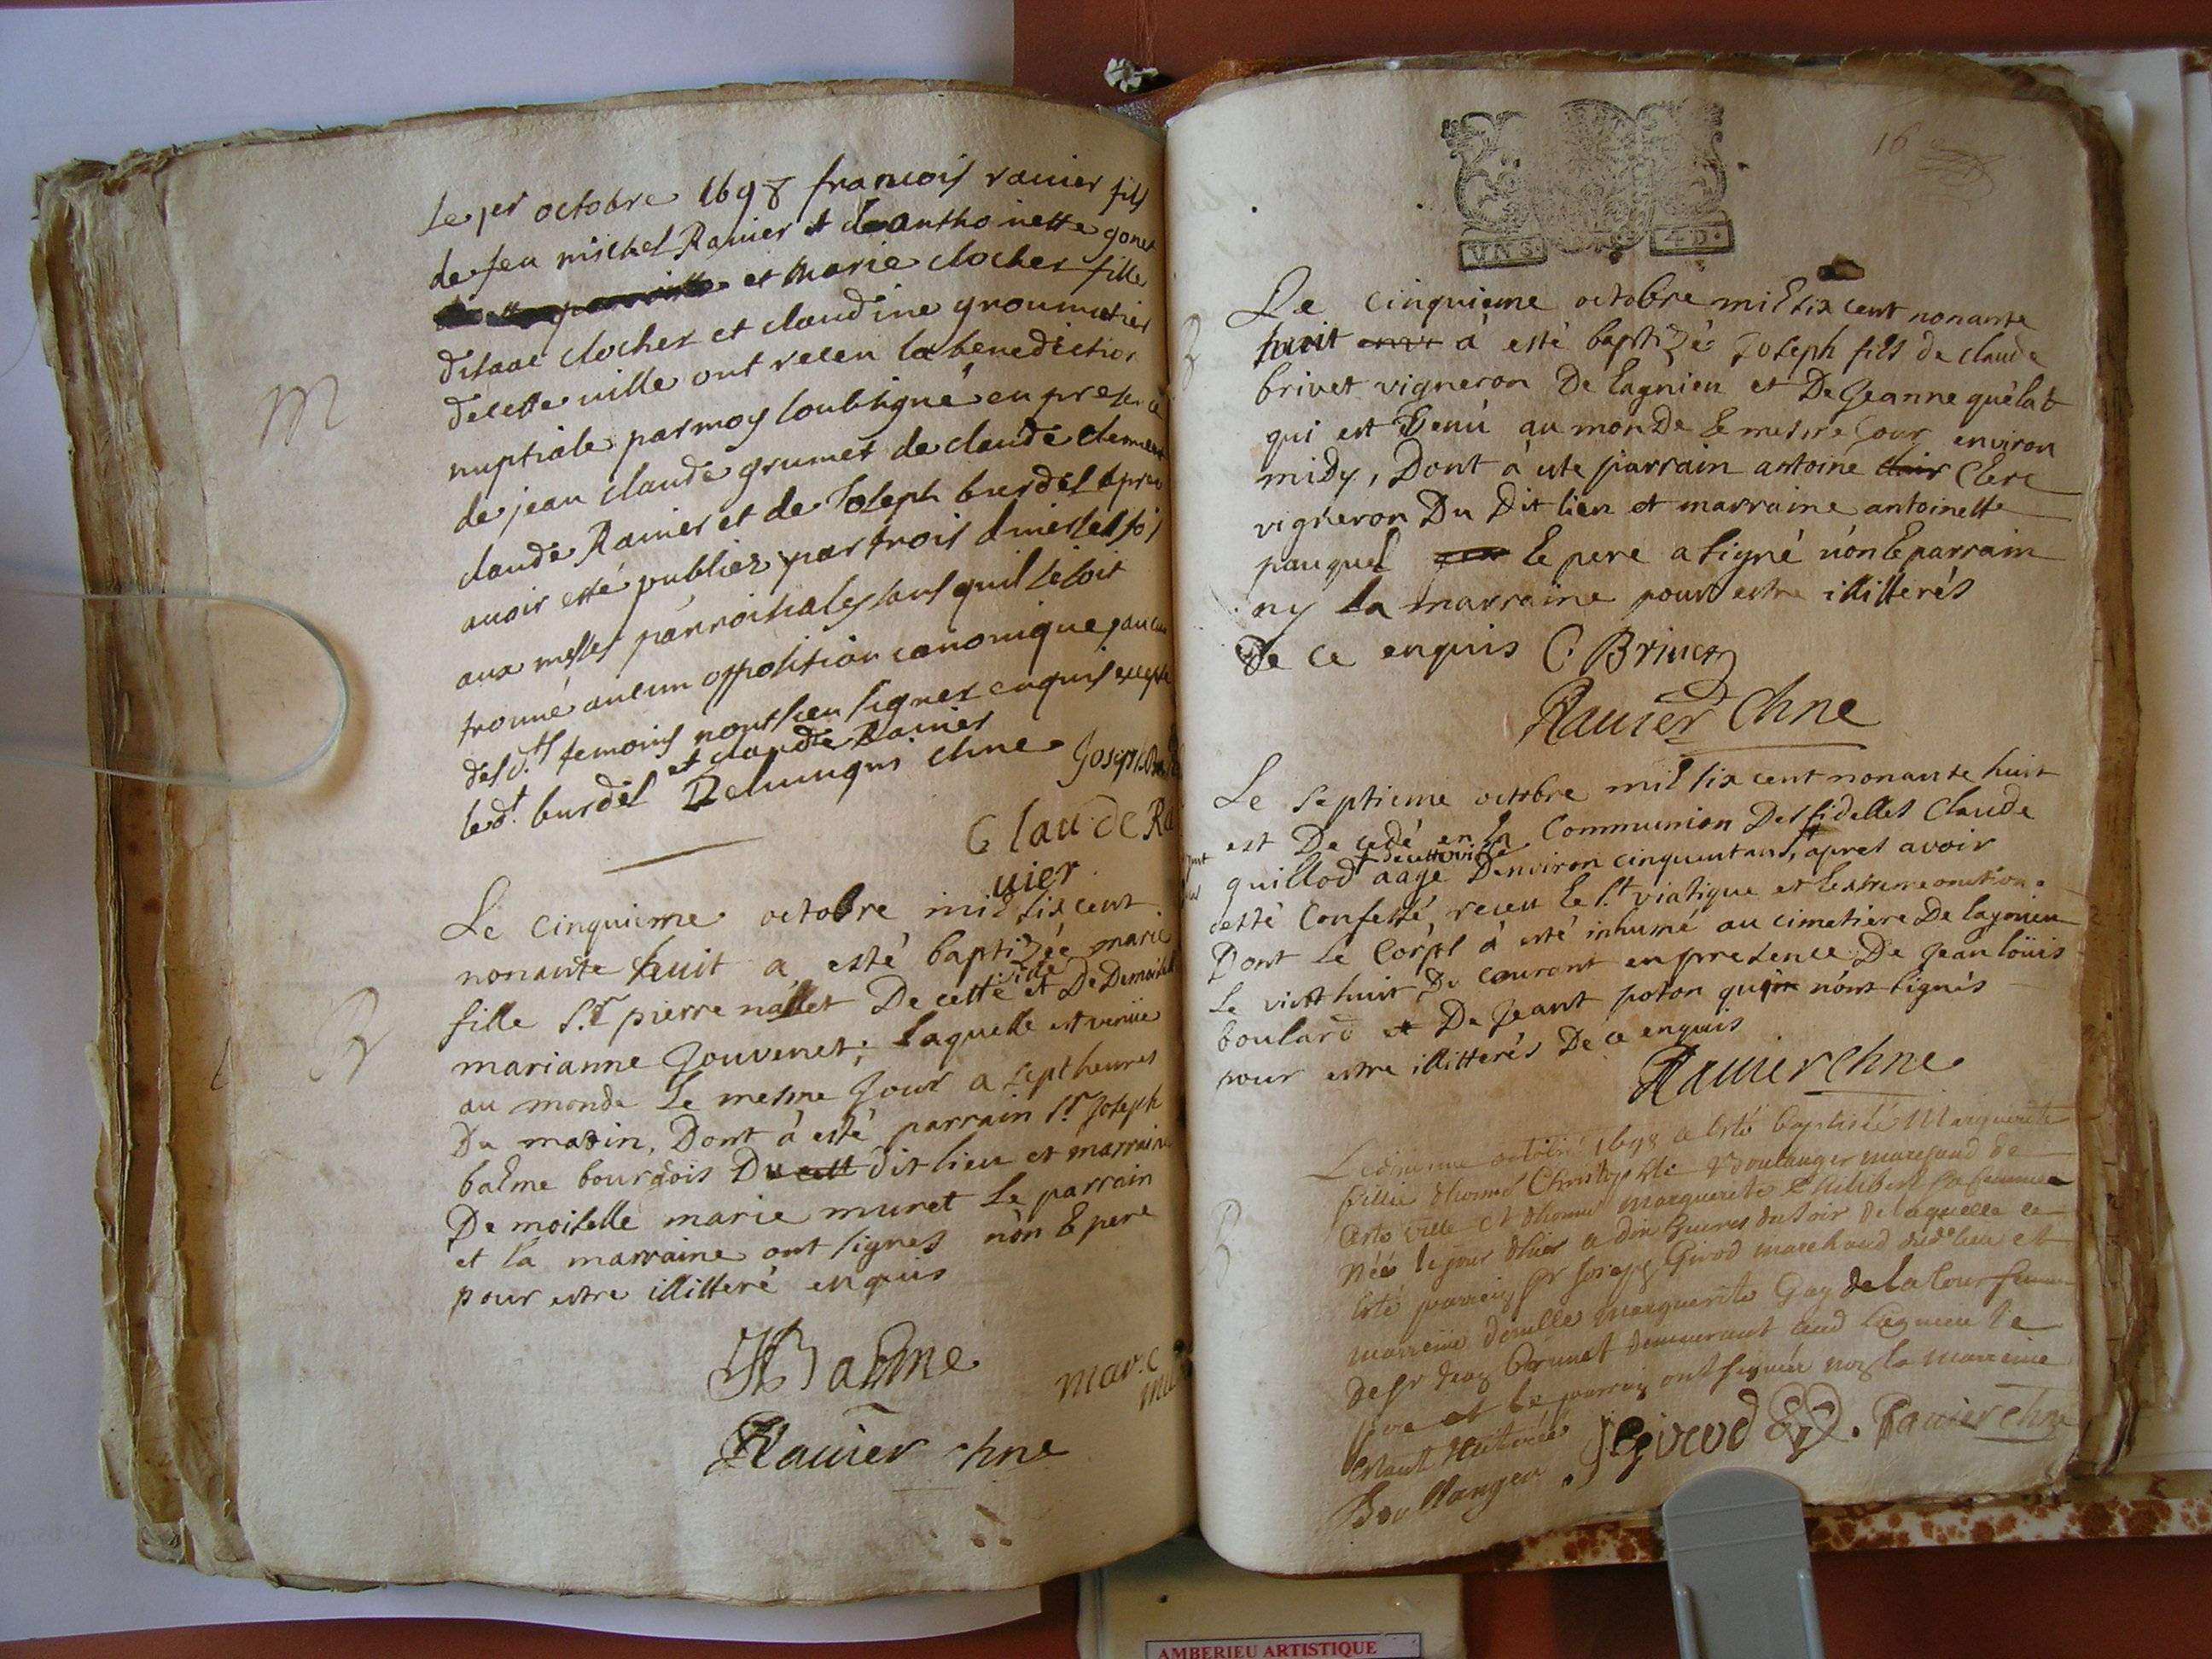 Le per octobre 1698 francois rauier fils
de feu michel Rauier et de anthoinette gonet
et Marie clocher fille
disaac clocher et claudine groumetier
de cette uille ont receu la benediction
nuptiale par moy soubsigné en presence
de jean claude grumet de claude clement
claude Rauier et de Joseph burdel apres
auoir esté publiez par trois diuerses fois
aux messes parroissiales sans quil se soit
trouué aucun opposition canonique, aucun
desd.ts temoins nont sceu signer enquis excepté
led.t burdel et claude Rauier
chne Joseph
Claude Ra
uier
M
Le cinquieme octobre mil six cent
nonante huit a esté baptizée marie
fille S.r pierre nallet De cette ville et De Demoiselle
marianne Jouvenet; laquelle est venüe
au monde Le mesme Jour a sept heures
Du matin, Dont à esté parrain S.r Joseph
balme bourgois Du cett dit lieu et marraine
Demoiselle marie muret Le parrain
et la marraine ont signés nòn Le pere
pour estre illitteré enquis
B
Balme
marie
Rauier chne
16
VN S. 4 D.
Le cinquieme octobre mil six cent nonante
huit a esté baptizé Joseph fils de claude
brivet vigneron De Lagnieu et De Jeanne quélat
qui est Venu au monde Le mesme Jour environ
midy, Dont à esté parrain antoine clair Clerc
vigneron Du Dit lieu et marraine antoinette
pauquel Le pere a signé nòn Le parrain
ny la marraine pour estre illitterés
De ce enquis C. Brivet
Rauier Chne
B
Le septieme octobre mil six cent nonante huit
est Decedé en la Communion Des fidelles Claude
quillod de cette ville aagé Denviron cinquant ans, apres avoir
esté Confessé, receu Le S.t viatique et Lextreme onction.
Dont Le Corps à esté inhumé au cimetiere De Lagnieu
Le vint huit Du courant en presence De Jean loüis
boulard et De Jeant poton qui nònt signés
pour estre illitterés De ce enquis
Rauier Chne
octobre 1698 a esté baptisée Marguerite
fillie dhonn Christophle Boulanger marchand de
ceste ville et dhonne marguerite Philibert sa femme
Née le jour dhier a dix heures du soir de laquelle a
esté parrein Sr Joseph Girod marchand dud lieu et
marreine demlle marguerite Guy de la Cour femme
de Sr Jean Brunet demeurant aud Lagnieu Le
pere et le parrein ont signéz non la marreine
B
Boullanger. J Girod. Rauier chne
AMBERIEU ARTISTIQUE